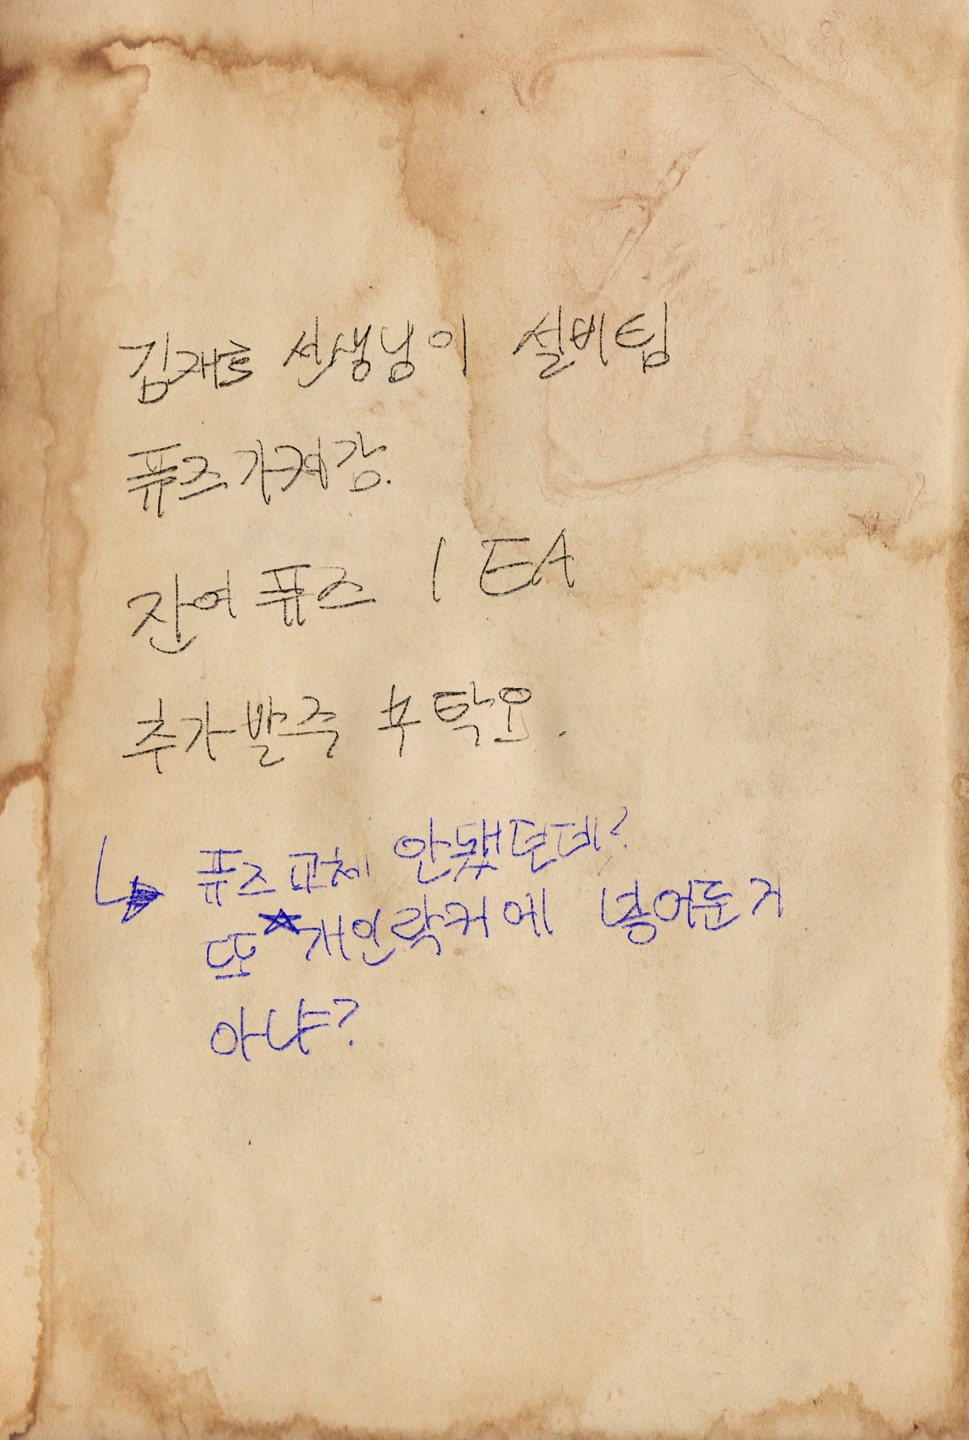 김재호 선생님이 설비팀
퓨즈 가져감.
잔여 퓨즈 1 EA
추가발주 부탁요.
↳ 퓨즈 교체 안됐던데?
또 ★개인락커에 넣어둔거
아냐?